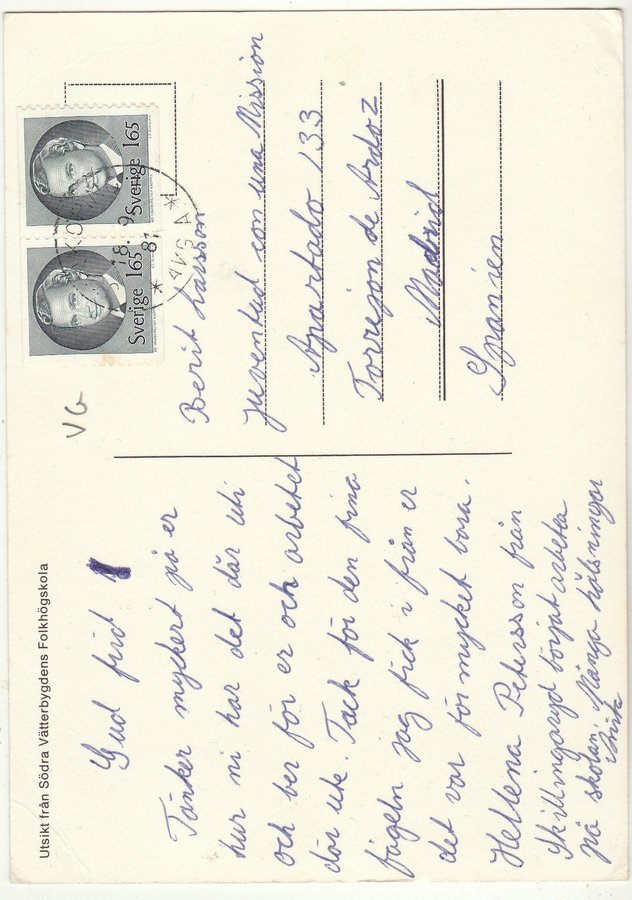 Utsikt från Södra Vätterbygdens Folkhögskola
Gud frid
Tänker myckert på er
hur ni har det där uti
och ber för er och arbetet
där ute. Tack för den fina
fågeln jag fick i från er
det var för mycket bara.
Hellena Petersson från
Skillingaryd börjat arbeta
på skolan. Många hälsningar
VG
Sverige 165
Sverige 165
18. 9
81
Berit Larsson
Juventud con una Mission
Apartado 133
Torrejon de Ardoz
Madrid
Spanien